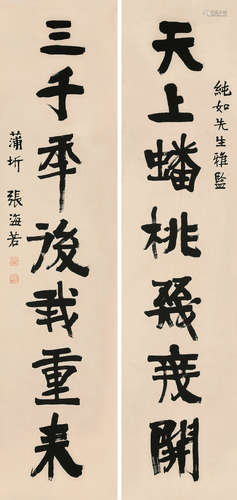 純如先生雅監
天上蟠桃幾度開
三千秊後我重来
蒲圻 張海若